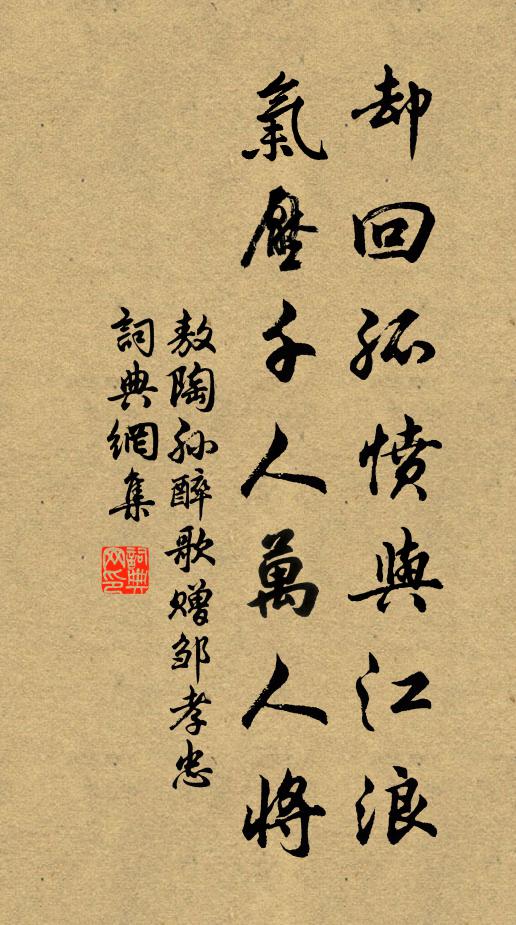 却回孤憤與江浪
氣壓千人萬人將
敖陶孙醉歌赠邹孝忠
詞典網集
詞典網印